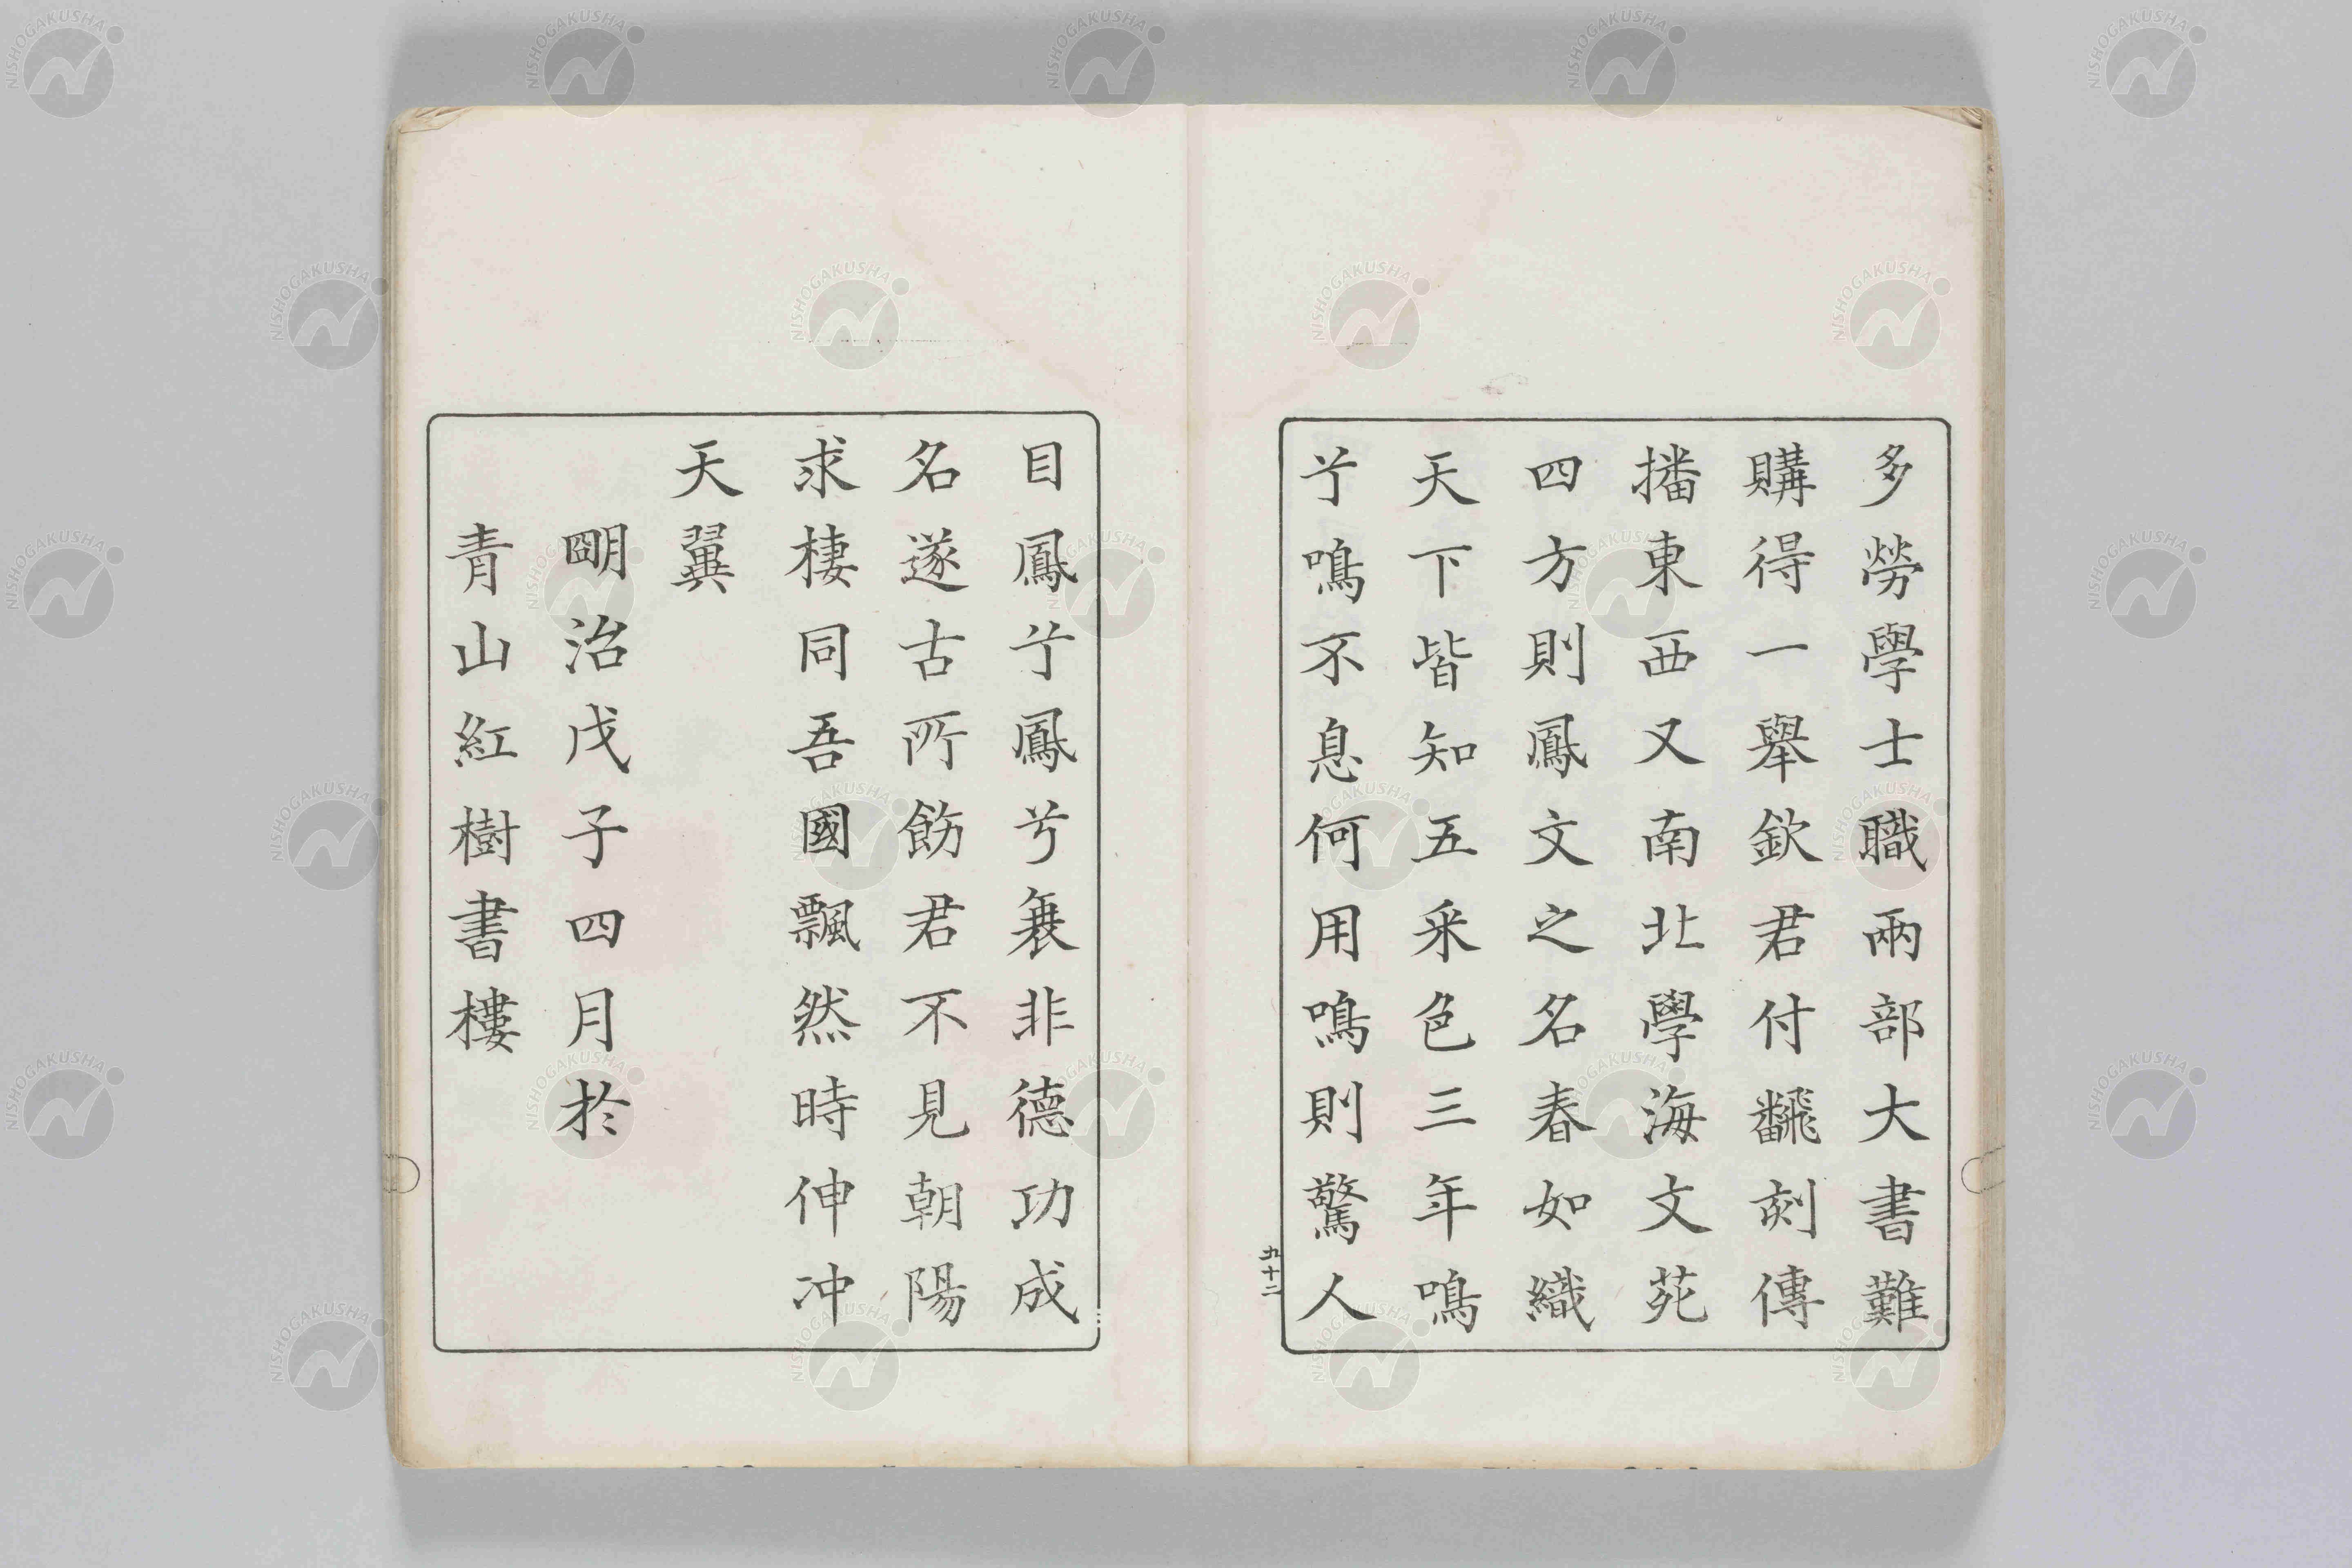 多勞學士職兩部大書難
購得一擧欽君付飜刻傳
播東西又南北學海文苑
四方則鳳文之名春如織
天下皆知五采色三年鳴
兮鳴不息何用鳴則驚人
九十二
目鳳兮鳳兮衰非德功成
名遂古所飭君不見朝陽
求棲同吾國飄然時伸冲
天翼
明治戊子四月於
青山紅樹書樓
NISHOGAKUSHA